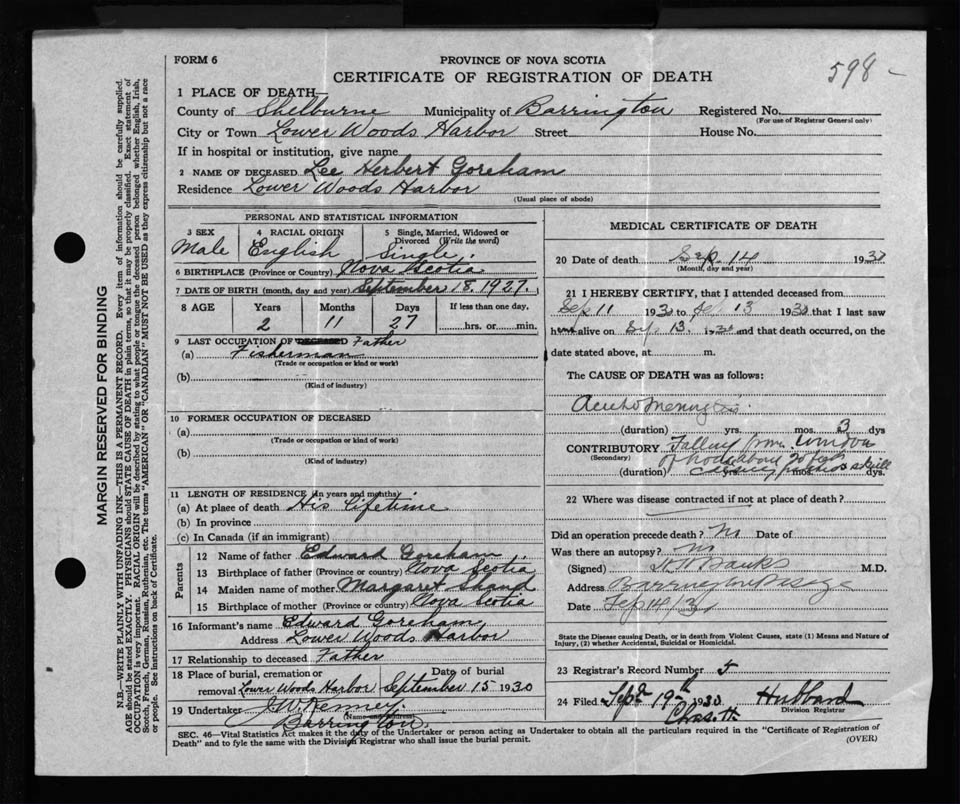 FORM 6
PROVINCE OF NOVA SCOTIA
CERTIFICATE OF REGISTRATION OF DEATH
598 -
1 PLACE OF DEATH
County of Shelburne Municipality of Barrington Registered No.
(For use of Registrar General only)
City or Town Lower Woods Harbor Street House No.
If in hospital or institution, give name
2 NAME OF DECEASED Lee Herbert Goreham
Residence Lower Woods Harbor
(Usual place of abode)
PERSONAL AND STATISTICAL INFORMATION
3 SEX
Male
4 RACIAL ORIGIN
English
5 Single, Married, Widowed or Divorced (Write the word)
Single
6 BIRTHPLACE (Province or Country) Nova Scotia
7 DATE OF BIRTH (month, day and year) September 18. 1927.
8 AGE Years Months Days If less than one day,
2 11 27 hrs. or min.
9 LAST OCCUPATION OF DECEASED Father
(a) Fisherman
(Trade or occupation or kind of work)
(b)
(Kind of industry)
10 FORMER OCCUPATION OF DECEASED
(a)
(Trade or occupation or kind of work)
(b)
(Kind of industry)
11 LENGTH OF RESIDENCE (in years and months)
(a) At place of death His Lifetime
(b) In province
(c) In Canada (if an immigrant)
Parents
12 Name of father Edward Goreham
13 Birthplace of father (Province or country) Nova Scotia
14 Maiden name of mother Margaret Shand
15 Birthplace of mother (Province or country) Nova Scotia
16 Informant's name Edward Goreham
Address Lower Woods Harbor
17 Relationship to deceased Father
18 Place of burial, cremation or Date of burial
removal Lower Woods Harbor September 15 1930
19 Undertaker J.W. Kenney
(Name and address)
Barrington
MEDICAL CERTIFICATE OF DEATH
20 Date of death Sep. 14 1930
(Month, day and year)
21 I HEREBY CERTIFY, that I attended deceased from
Sep 11 1930 to Sep 13 1930 that I last saw
him alive on Sep 13. 1930 and that death occurred, on the
date stated above, at m.
The CAUSE OF DEATH was as follows:
Acute Meningitis
(duration) yrs. mos. 3 dys
CONTRIBUTORY Falling from window
(Secondary)
(duration) yrs. mos. dys.
22 Where was disease contracted if not at place of death?
Did an operation precede death? No Date of
Was there an autopsy? No
(Signed) Banks M.D.
Address Barrington Passage
Date Sep 14 / 30
State the Disease causing Death, or in death from Violent Causes, state (1) Means and Nature of
Injury, (2) whether Accidental, Suicidal or Homicidal.
23 Registrar's Record Number 5
24 Filed Sept 19th 1930 Hubbard
Division Registrar
SEC. 46—Vital Statistics Act makes it the duty of the Undertaker or person acting as Undertaker to obtain all the particulars required in the "Certificate of Registration of
Death" and to fyle the same with the Division Registrar who shall issue the burial permit.
(OVER)
MARGIN RESERVED FOR BINDING
N.B.—WRITE PLAINLY WITH UNFADING INK—THIS IS A PERMANENT RECORD. Every item of information should be carefully supplied.
AGE should be stated EXACTLY. PHYSICIANS should STATE CAUSE OF DEATH in plain terms, so that it may be properly classified. Exact statement of
OCCUPATION is very important. RACIAL ORIGIN will be described by stating to what people or tongue the deceased person belonged whether English, Irish,
Scotch, French, German, Russian, Ruthenian, etc. The terms "AMERICAN" OR "CANADIAN" MUST NOT BE USED as they express citizenship but not a race
or people. See instructions on back of Certificate.